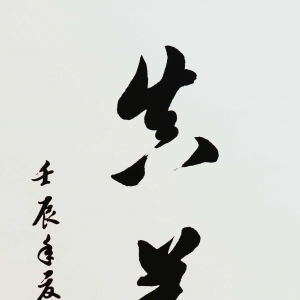 真
壬辰年夏